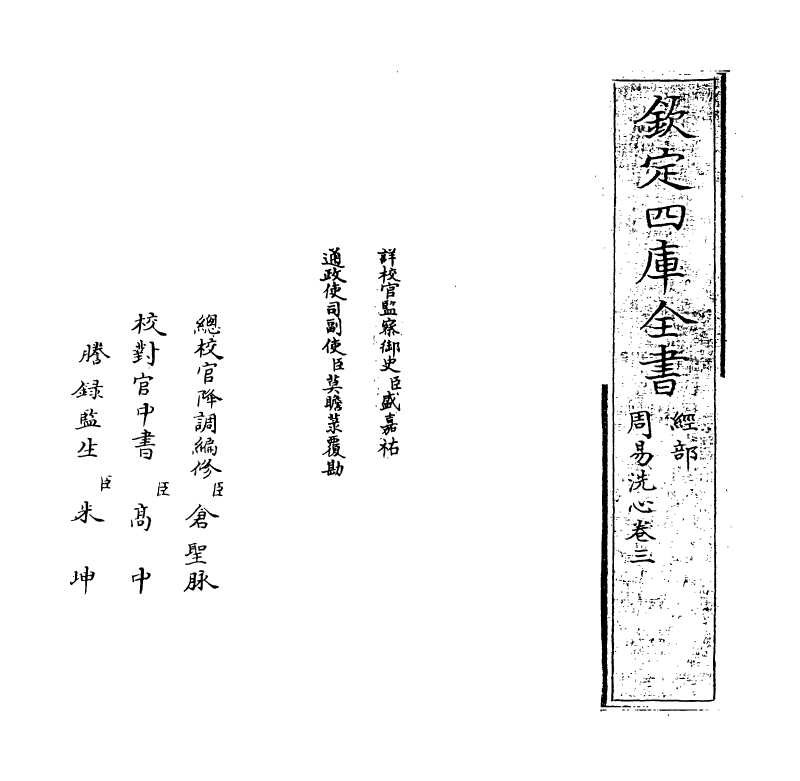 欽定四庫全書
經部
周易洗心卷三
詳校官監察御史臣盛嘉祐
通政使司副使臣莫瞻菉覆勘
總校官降調編修臣倉聖脉
校對官中書臣高中
謄錄監生臣朱坤